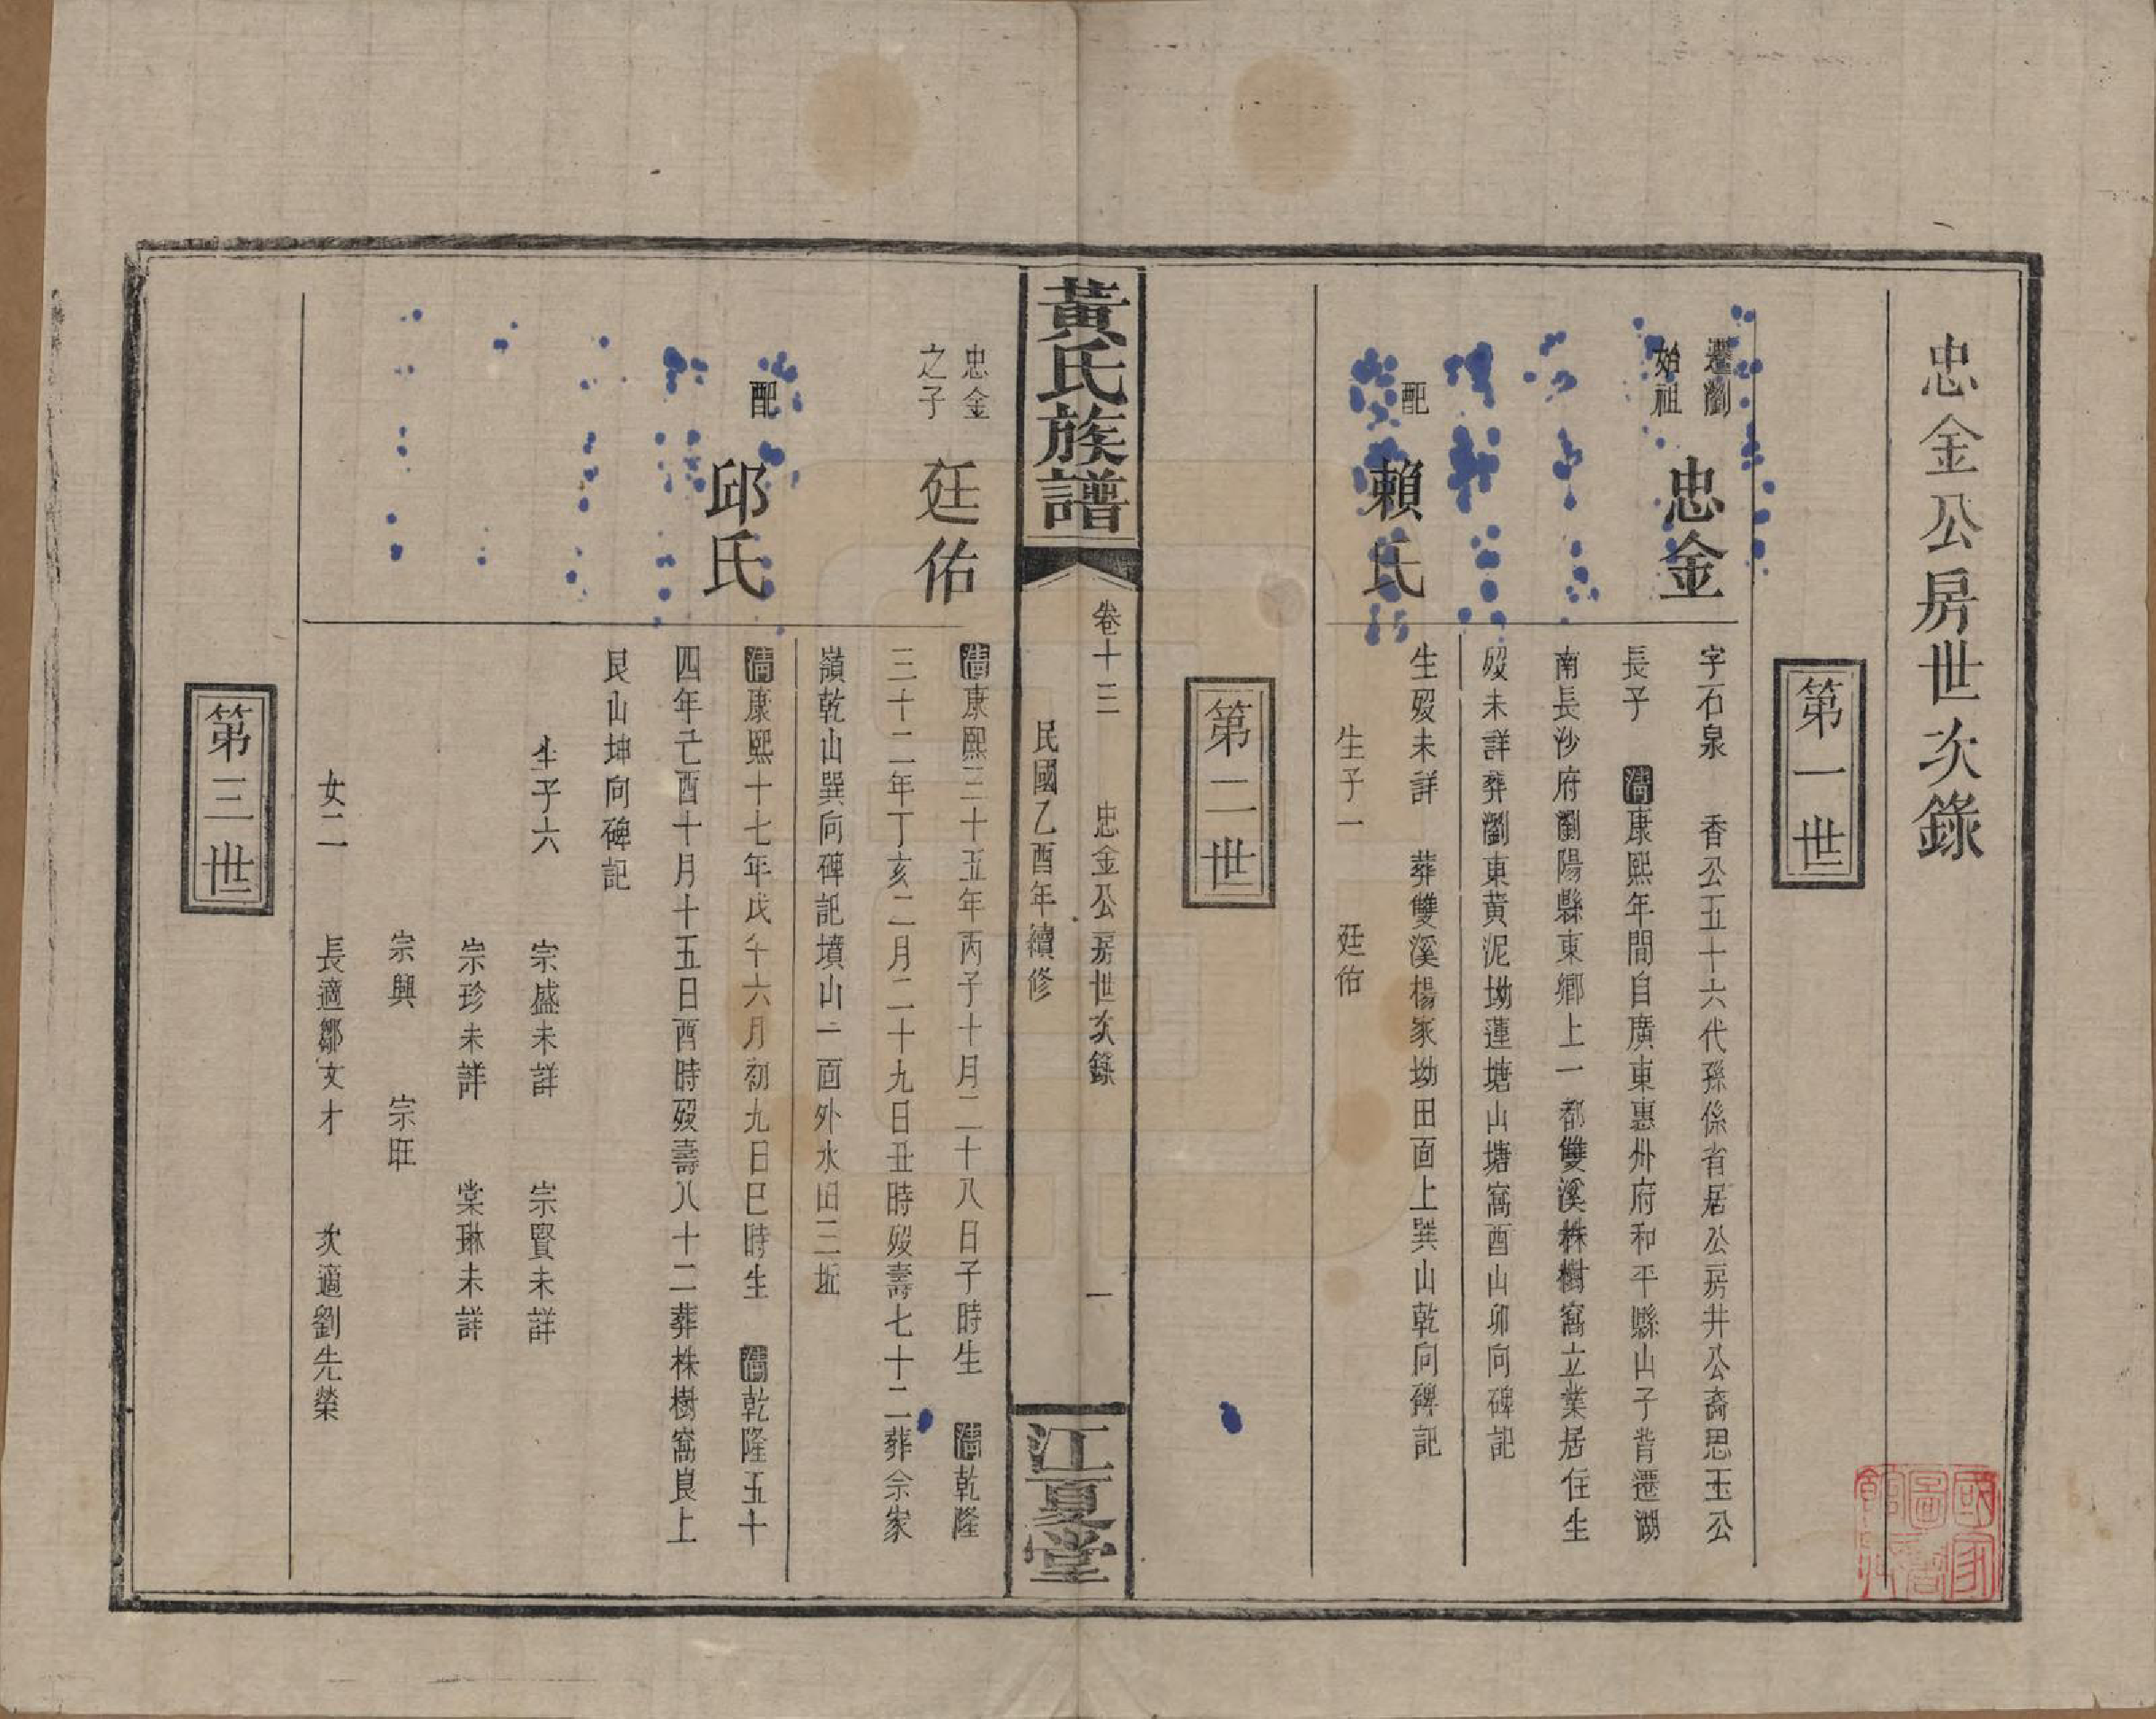 忠金公房世次錄
第一世
遷瀏
始祖
忠金
字石泉　香公五十六代孫係省居公房井公裔思玉公
長子　清康熙年間自廣東惠州府和平縣山子背遷湖
南長沙府瀏陽縣東鄉上一都雙溪株樹窩立業居住生
歿未詳葬瀏東黃泥坳蓮塘山塘窩酉山卯向碑記
配
賴氏
生歿未詳　葬雙溪楊家坳田面上巽山乾向碑記
生子一　廷佑
第二世
黃氏族譜
卷十三　忠金公房世次錄　一
民國乙酉年續修
江夏堂
忠金
之子
廷佑
清康熙三十五年丙子十月二十八日子時生　清乾隆
三十二年丁亥二月二十九日丑時歿壽七十二葬佘家
嶺乾山巽向碑記墳山一面外水田三坵
配
邱氏
清康熙十七年戊午六月初九日巳時生　清乾隆五十
四年己酉十月十五日酉時歿壽八十二葬株樹窩艮上
艮山坤向碑記
生子六　宗盛未詳　宗賢未詳
宗珍未詳　棠琳未詳
宗興　宗旺
女二　長適鄒文才　次適劉先榮
第三世
國家圖書館藏